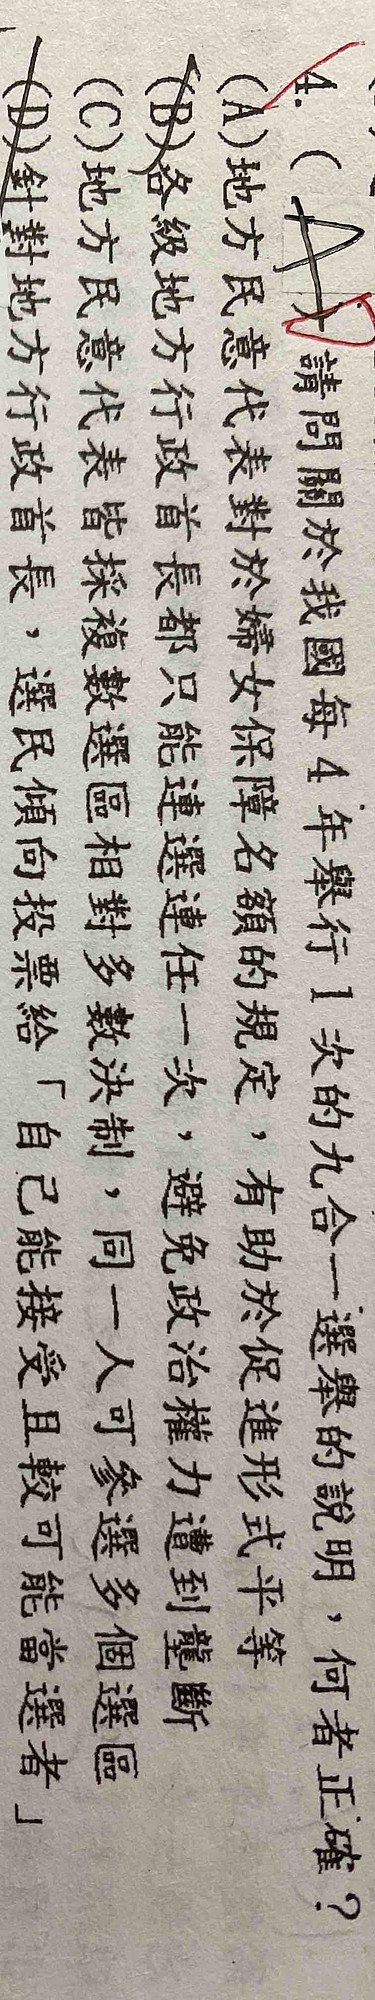 4. ( A ) D 請問關於我國每4年舉行1次的九合一選舉的說明，何者正確？
(A)地方民意代表對於婦女保障名額的規定，有助於促進形式平等
(B)各級地方行政首長都只能連選連任一次，避免政治權力遭到壟斷
(C)地方民意代表皆採複數選區相對多數決制，同一人可參選多個選區
(D)針對地方行政首長，選民傾向投票給「自己能接受且較可能當選者」